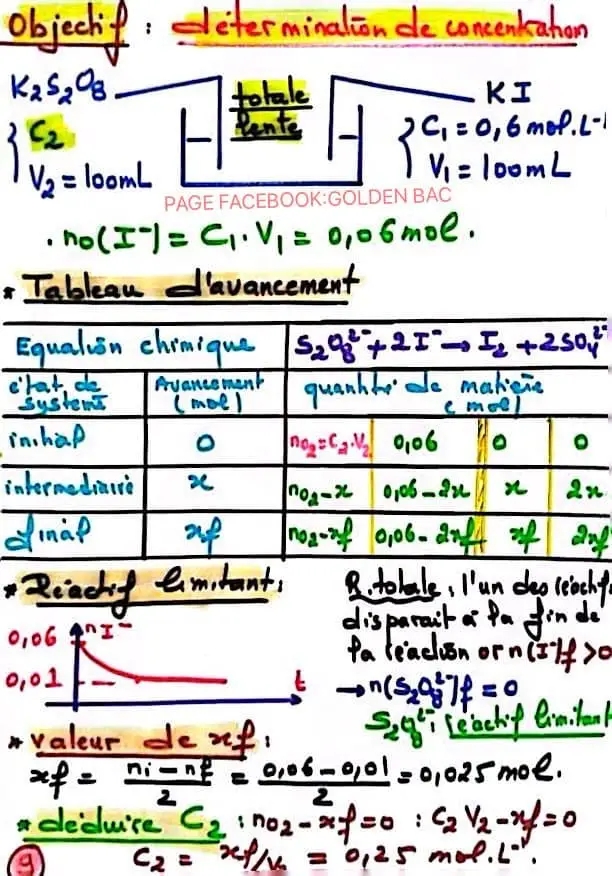 Objectif : détermination de concentration
K2S2O8
totale
lente
KI
{ C2
V2 = 100mL
{ C1 = 0,6 mol.L-1
V1 = 100mL
PAGE FACEBOOK:GOLDEN BAC
. no(I-) = C1.V1 = 0,06 mol.
* Tableau d'avancement
Equation chimique | S2O8²⁻ + 2I⁻ → I2 + 2SO4²⁻
état de système | Avancement (mol) | quantité de matière (mol)
initial | 0 | no2=C2.V2 | 0,06 | 0 | 0
intermediaire | x | no2-x | 0,06-2x | x | 2x
final | xf | no2-xf | 0,06-2xf | xf | 2xf
* Réactif limitant :
0,06
nI⁻
0,01
t
R.totale : l'un des réactifs
disparait à la fin de
la réaction or n(I⁻)f >0
→ n(S2O8²⁻)f = 0
S2O8²⁻ : réactif limitant
* valeur de xf :
xf = ni - nf / 2 = 0,06 - 0,01 / 2 = 0,025 mol.
* déduire C2 : no2 - xf = 0 : C2 V2 - xf = 0
C2 = xf/V2 = 0,25 mol.L⁻¹.
9